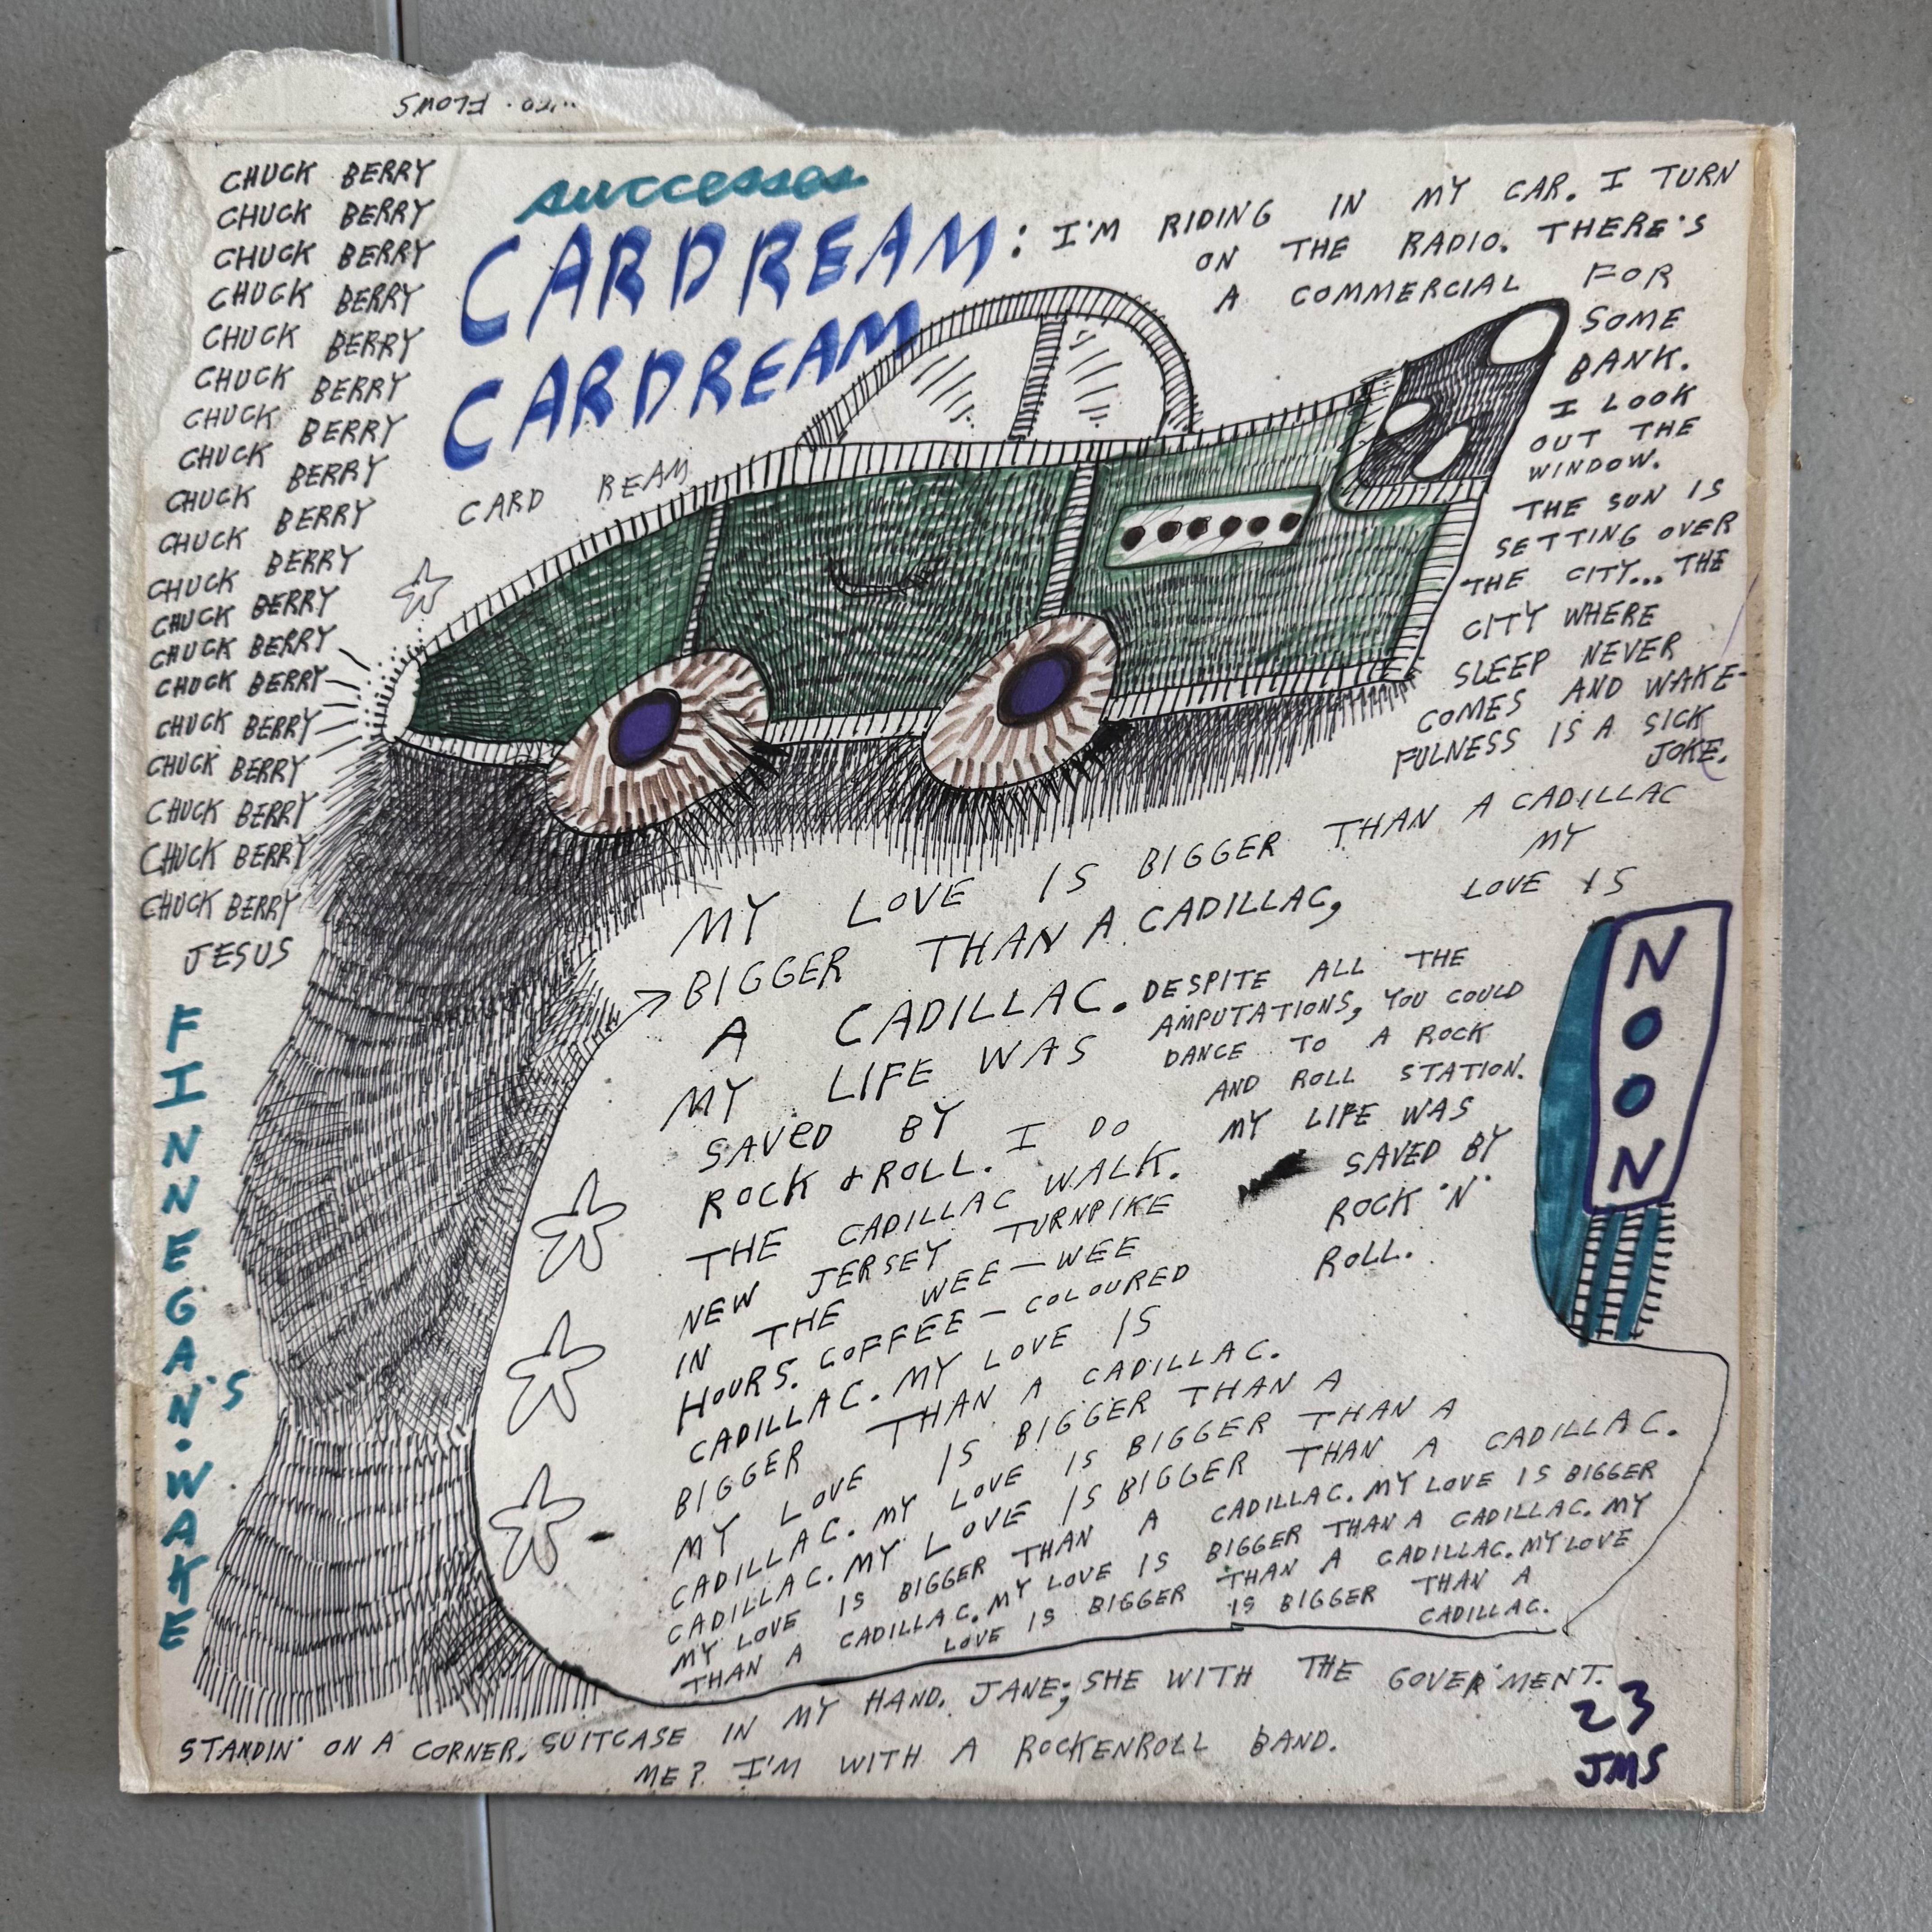 FLOWS
CHUCK BERRY
CHUCK BERRY
CHUCK BERRY
CHUCK BERRY
CHUCK BERRY
CHUCK BERRY
CHUCK BERRY
CHUCK BERRY
CHUCK BERRY
CHUCK BERRY
CHUCK BERRY
CHUCK BERRY
CHUCK BERRY
CHUCK BERRY
CHUCK BERRY
CHUCK BERRY
CHUCK BERRY
CHUCK BERRY
CHUCK BERRY
JESUS
FINNEGAN'S·WAKE
successes
CARDREAM:
CARDREAM
CARD REAM
I'M RIDING IN MY CAR. I TURN
ON THE RADIO. THERE'S
A COMMERCIAL FOR
SOME
BANK.
I LOOK
OUT THE
WINDOW.
THE SUN IS
SETTING OVER
THE CITY... THE
CITY WHERE
SLEEP NEVER
COMES AND WAKE-
FULNESS IS A SICK
JOKE.
MY LOVE IS BIGGER THAN A CADILLAC
MY
LOVE IS
BIGGER THAN A CADILLAC,
A CADILLAC.
MY LIFE WAS
SAVED BY
ROCK & ROLL. I DO
THE CADILLAC WALK.
NEW JERSEY TURNPIKE
IN THE WEE-WEE
HOURS. COFFEE-COLOURED
CADILLAC. MY LOVE IS
BIGGER THAN A CADILLAC.
MY LOVE IS BIGGER THAN A
CADILLAC. MY LOVE IS BIGGER THAN A
CADILLAC. MY LOVE IS BIGGER THAN A CADILLAC.
MY LOVE IS BIGGER THAN A CADILLAC. MY LOVE IS BIGGER
THAN A CADILLAC. MY LOVE IS BIGGER THAN A CADILLAC. MY
LOVE IS BIGGER THAN A CADILLAC. MY LOVE
IS BIGGER THAN A
CADILLAC.
DESPITE ALL THE
AMPUTATIONS, YOU COULD
DANCE TO A ROCK
AND ROLL STATION.
MY LIFE WAS
SAVED BY
ROCK 'N'
ROLL.
NOON
STANDIN' ON A CORNER, SUITCASE IN MY HAND. JANE; SHE WITH THE GOVER'MENT.
ME? I'M WITH A ROCKENROLL BAND.
23
JMS